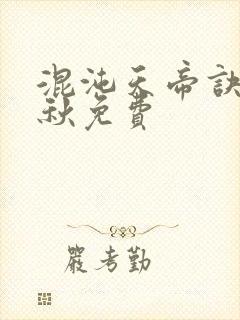 混沌天帝訣
秋免費
嚴考勤